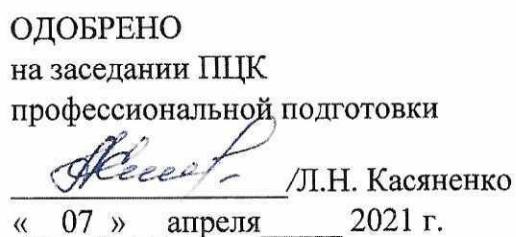 ОДОБРЕНО
на заседании ПЦК
профессиональной подготовки
/Л.Н. Касяненко
« 07 » апреля 2021 г.